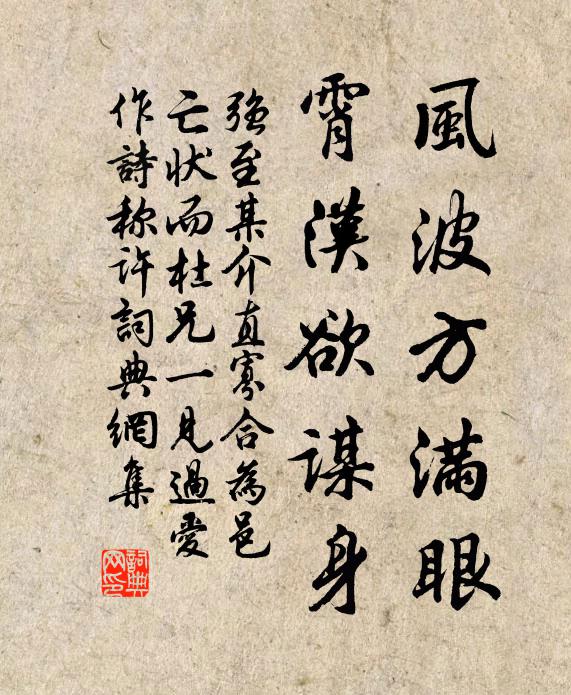 風波方滿眼
霄漢欲謀身
强至某介直寡合為邑
亡状而杜兄一見過愛
作詩称許詞典網集
詞典
网印